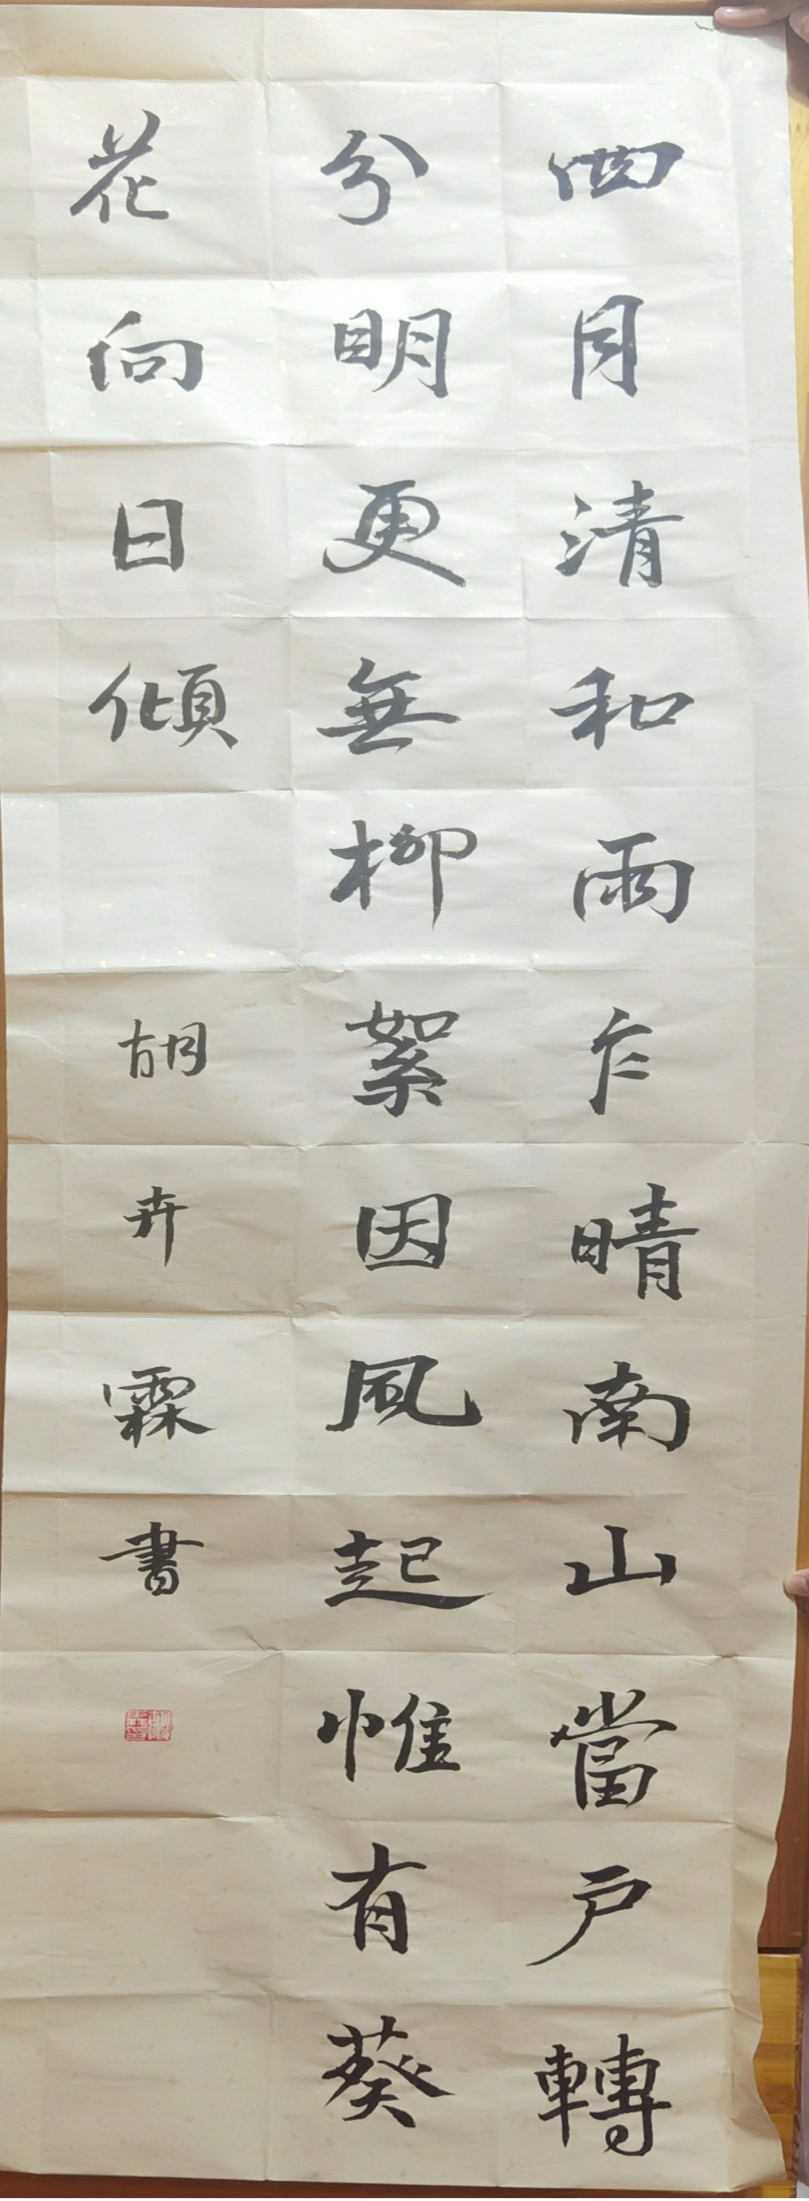 四月清和雨乍晴南山當戶轉
分明更無柳絮因風起惟有葵
花向日傾
胡卉霖書